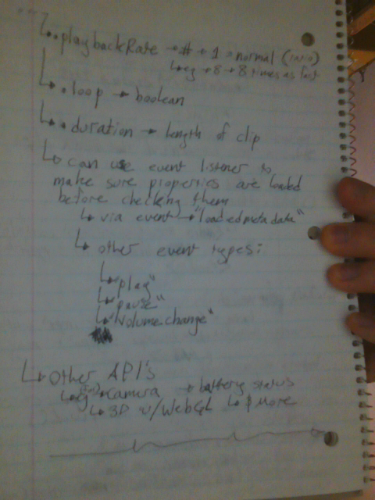 ↳ .playbackRate → # → 1 = normal
↳ eg → 8 → 8 times as fast
↳ .loop → boolean
↳ .duration → length of clip
↳ can use event listener to
make sure properties are loaded
before checking them
↳ via event → "loadedmetadata"
↳ other event types:
↳ "play"
↳ "pause"
↳ "volumechange"
↳ Other API's
↳ eg → Camera → battery status
↳ 3D w/ WebGL ↳ & More